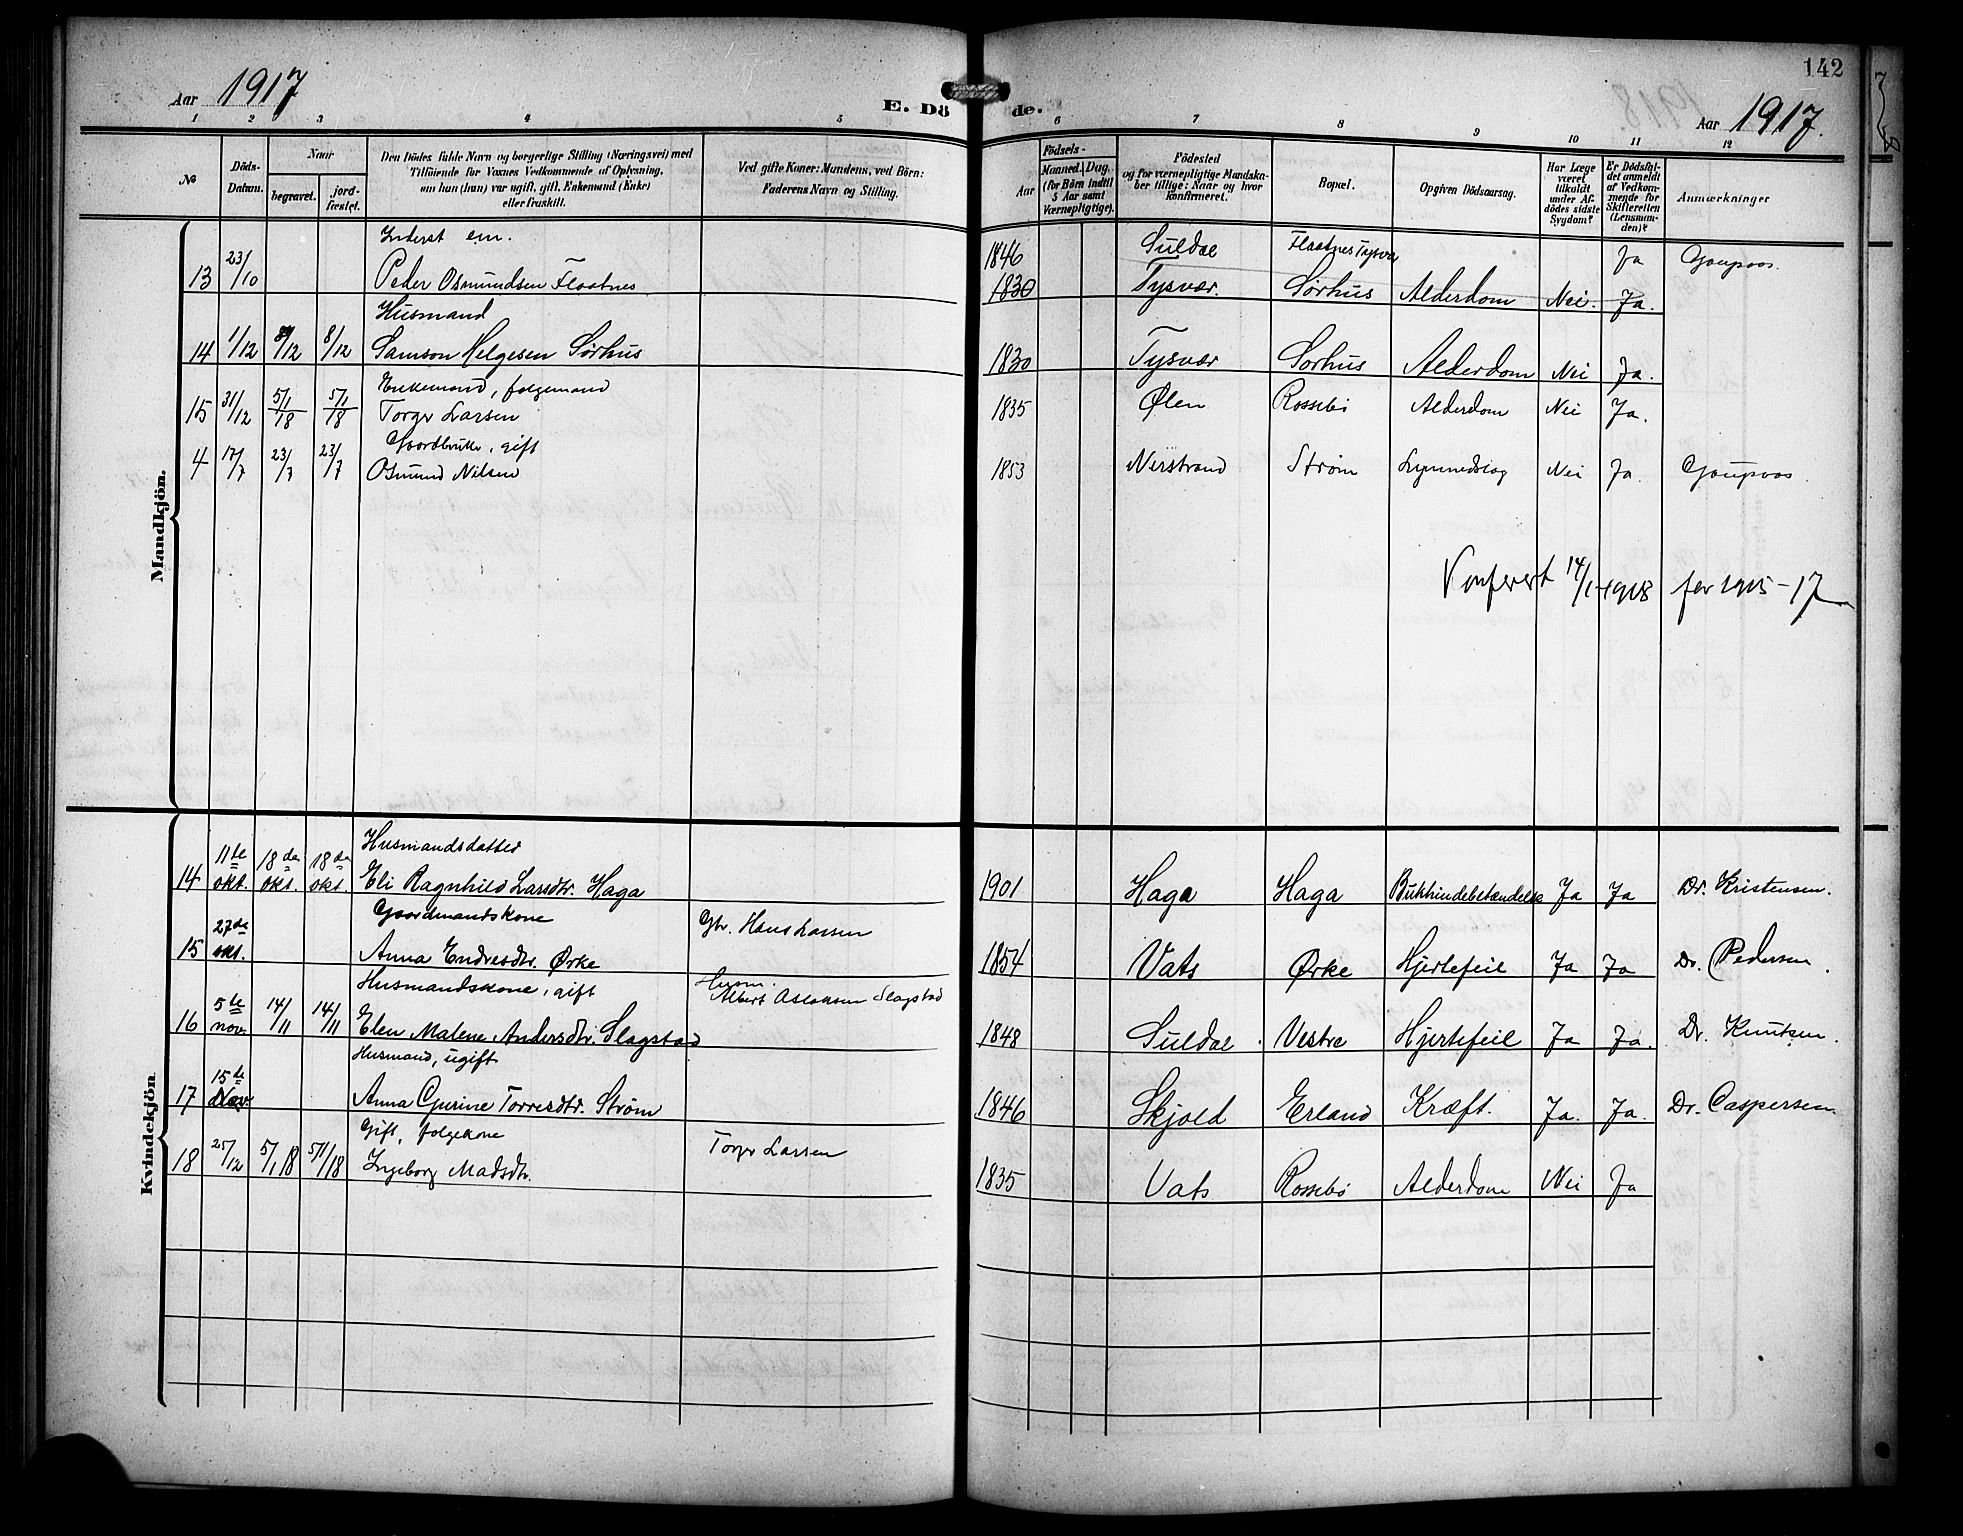 142
Aar 1917
E. Dö
de.
Aar 1917.
1 2 3 4 5 6 7 8 9 10 11 12
№
Döds-
Datum.
Naar
begravet.
jord-
fæstet.
Den Dödes fulde Navn og borgerlige Stilling (Næringsvei) med
Tilföiende for Voxnes Vedkommende af Oplysning,
om han (hun) var ugift, gift, Enkemand (Enke)
eller fraskilt.
Ved gifte Koner: Mandens, ved Börn:
Faderens Navn og Stilling.
Födsels-
Aar
Maaned. Dag.
(for Börn indtil
5 Aar samt
Værnepligtige).
Födested
og for værnepligtige Mandska-
ber tillige: Naar og hvor
konfirmeret.
Bopæl.
Opgiven Dödsaarsag.
Har Læge
været
tilkaldt
under Af-
dödes sidste
Sygdom?
Er Dödsfal-
det anmeldt
af Vedkom-
mende for
Skifteretten
(Lensman-
den)?
Anmærkninger
Mandkjön.
Inderst em.
13 23/10 Peder Osmundsen Flaatnes 1846 Suldal Flaatnes Tysvær Ja
1830 Tysvær. Sørhus Alderdom Nei. Ja.
Husmand
14 1/12 8/12 8/12 Samson Helgesen Sørhus 1830 Tysvær Sørhus Alderdom Nei Ja.
Enkemand, folgemand
15 31/12 5/1 18 5/1 18 Torger Larsen 1835 Ølen Rossebø Alderdom Nei Ja.
Gaardbruker, gift
4 17/7 23/7 23/7 Osmund Nilsen 1853 Nerstrand Strøm Nei Ja.
Konferert 14/1-1918 for 1915-17
Kvindekjön
Husmandsdatter
14 11te okt. 18de okt. 18de okt. Eli Ragnhild Larsdtr. Haga 1901 Haga Haga Bukhindebetændelse Ja Ja Dr. Kristensen.
Gaardmandskone
15 27de okt. Anna Endresdtr. Ørke Gbr. Hans Larsen 1854 Vats Ørke Hjertefeil Ja Ja Dr. Pedersen.
Husmandskone, gift Husm.
16 5te nov. 14/11 14/11 Elen Malene Andersdtr. Slagstad Albert Aslaksen Slagstad 1848 Suldal. Vestre Hjertefeil Ja Ja. Dr. Knutsen.
Husmand, ugift
17 15de Nov. Anna Gurine Torresdtr. Strøm 1846 Skjold Erland Kræft. Ja. Ja. Dr. Caspersen
Gift, folgekone
18 25/12 5/1 18 5/1/18 Ingeborg Madsdtr. Torger Larsen 1835 Vats Rossebø Alderdom Nei Ja